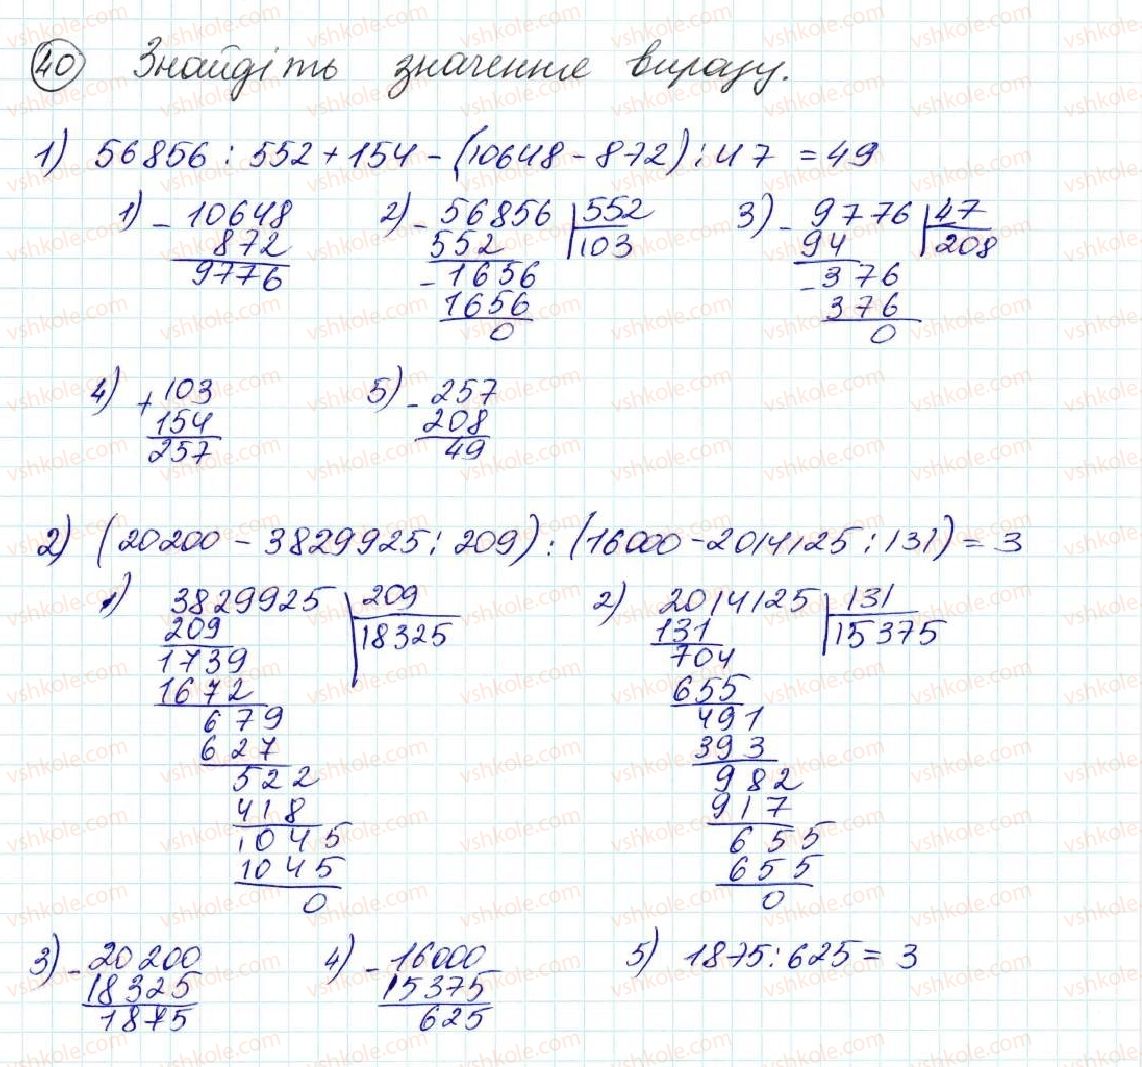 40 Знайдіть значення виразу.
1) 56856 : 552 + 154 - (10648 - 872) : 47 = 49
1) - 10648 2) - 56856 | 552 3) - 9776 | 47
872 552 | 103 94 | 208
9776 - 1656 - 376
1656 376
0 0
4) + 103 5) - 257
154 208
257 49
2) (20200 - 3829925 : 209) : (16000 - 2014125 : 131) = 3
1) 3829925 | 209 2) 2014125 | 131
209 | 18325 131 | 15375
1739 704
1672 655
679 491
627 393
522 982
418 917
1045 655
1045 655
0 0
3) - 20200 4) - 16000 5) 1875 : 625 = 3
18325 15375
1875 625